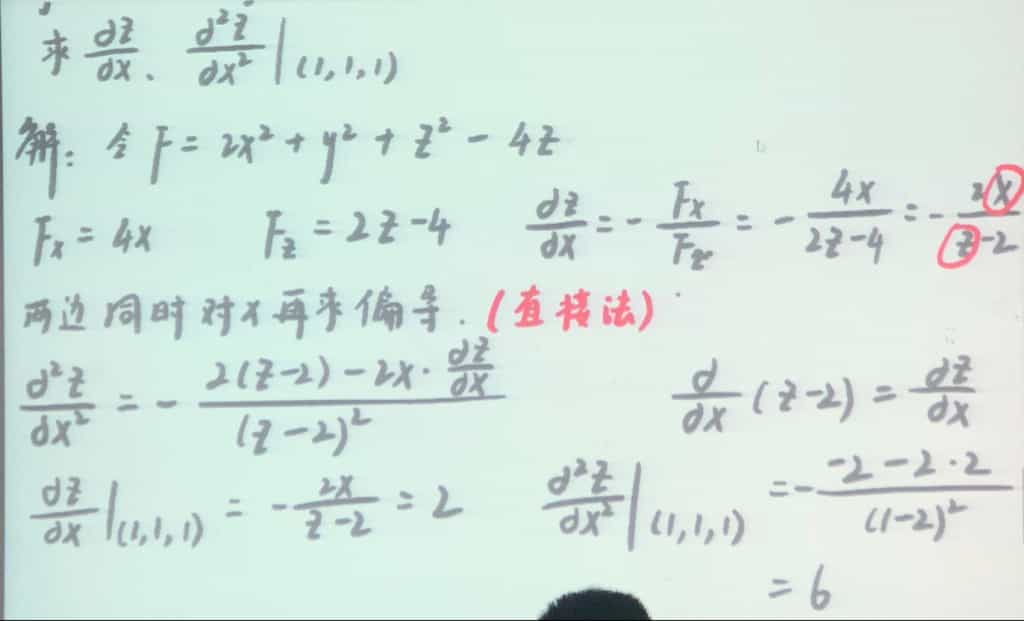 求 ∂z/∂x、 ∂²z/∂x² |(1,1,1)
解: 令 F = 2x² + y² + z² - 4z
Fx = 4x Fz = 2z-4 ∂z/∂x = - Fx/Fz = - 4x/(2z-4) = - 2x/(z-2)
两边同时对x再求偏导. (直接法)
∂²z/∂x² = - (2(z-2) - 2x·∂z/∂x)/(z-2)² ∂/∂x (z-2) = ∂z/∂x
∂z/∂x |(1,1,1) = - 2x/(z-2) = 2 ∂²z/∂x² |(1,1,1) = - (-2-2·2)/(1-2)²
= 6